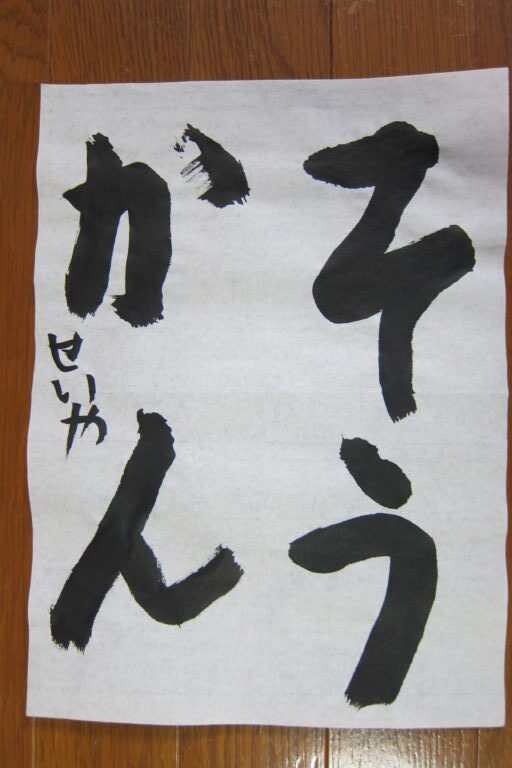 そう
かん
せいや